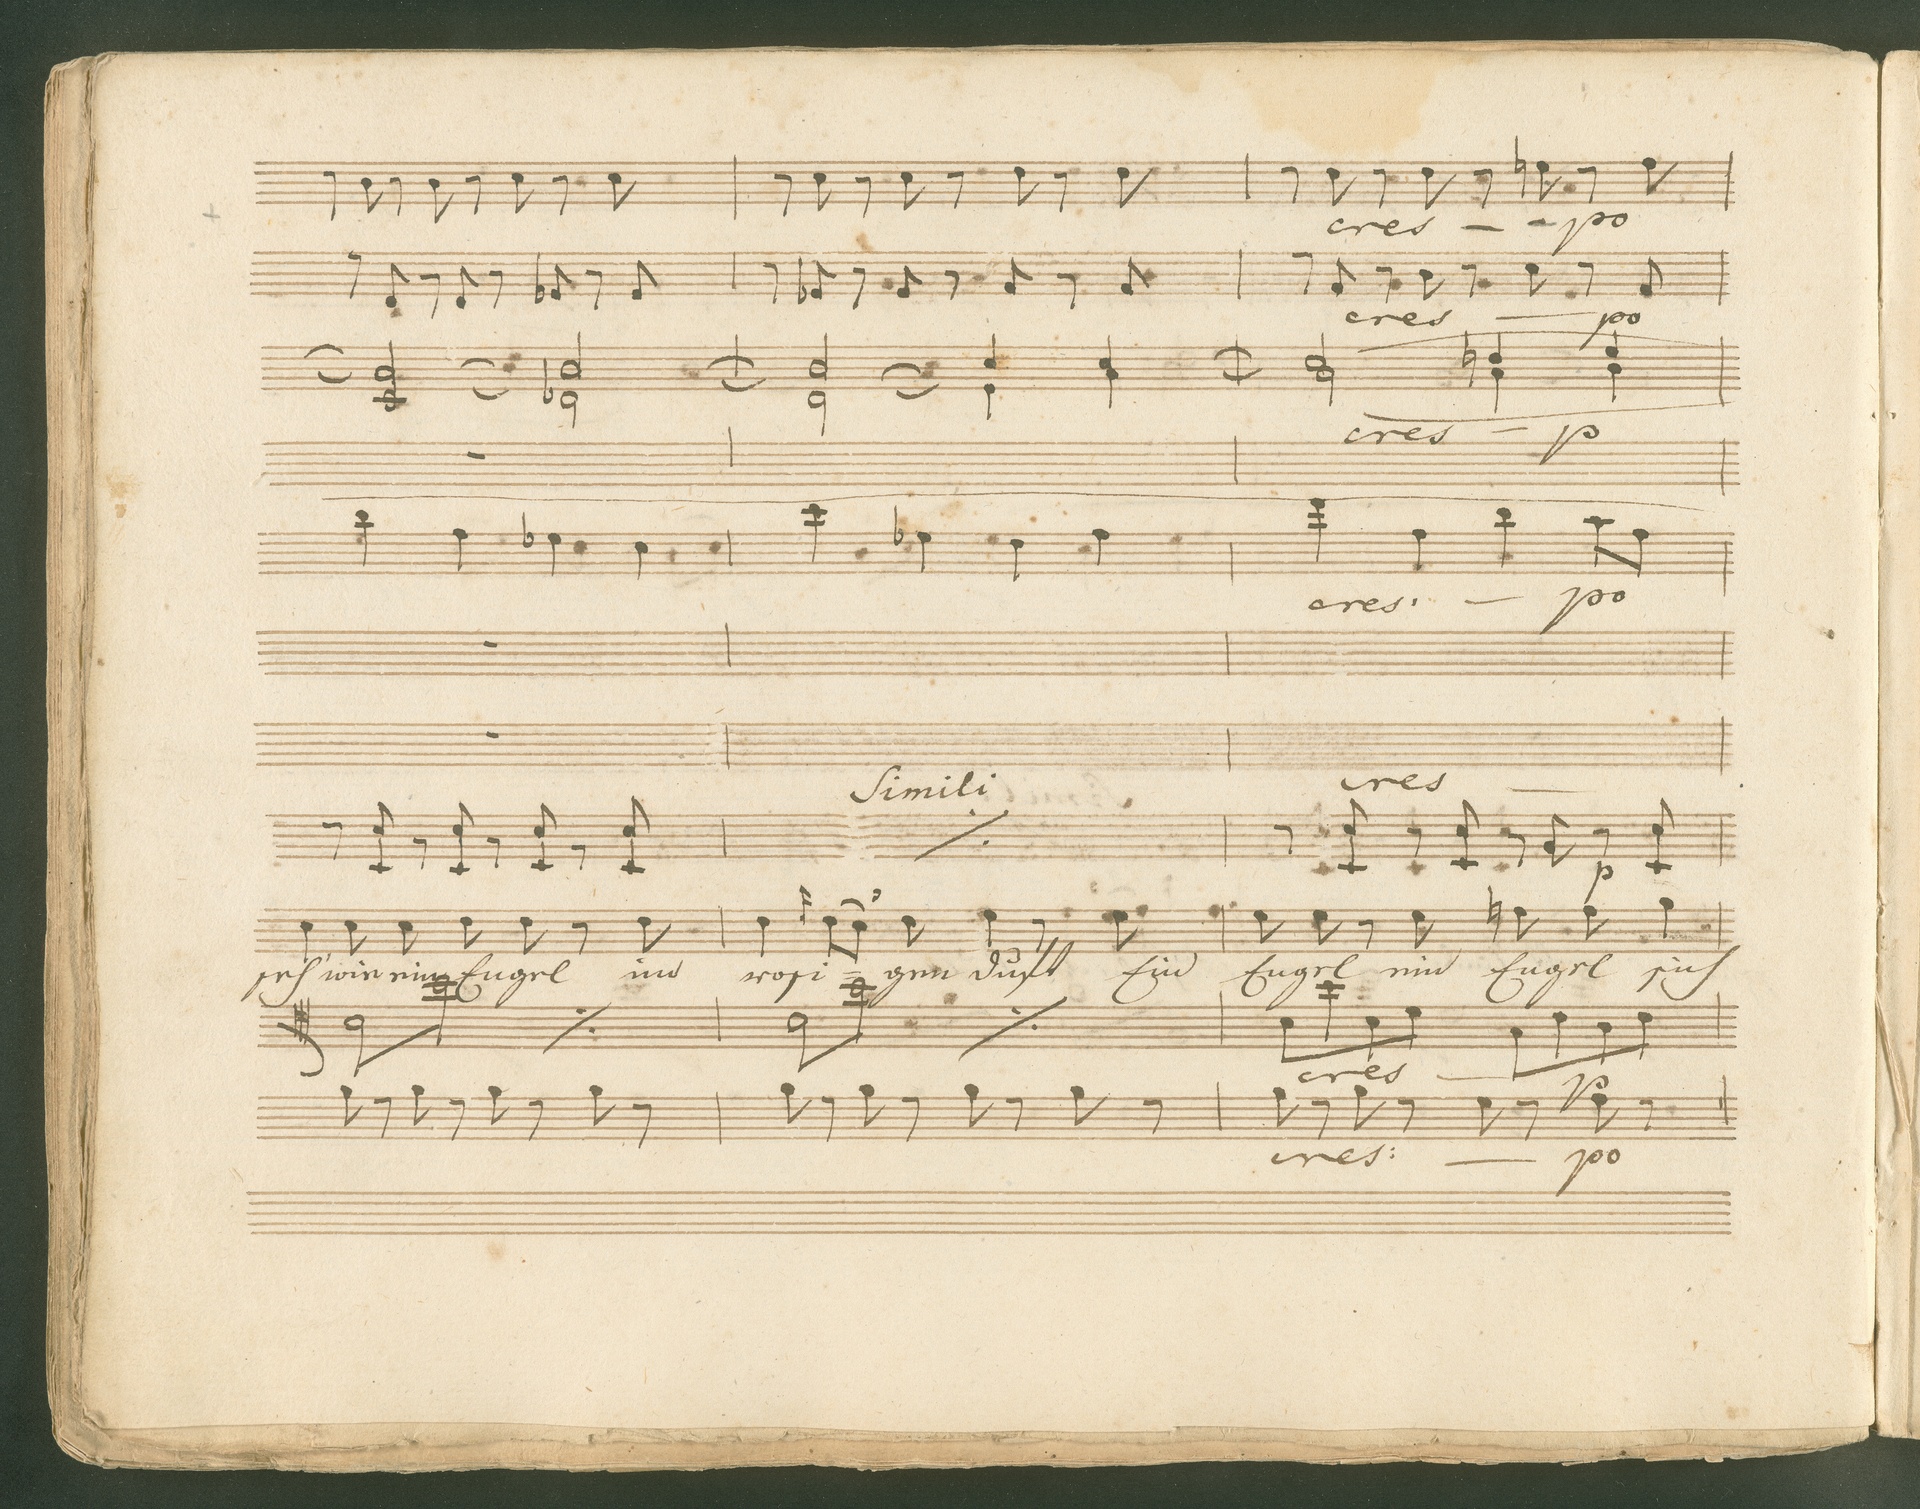 cres - - po
cres — po
cres — p
cres: — po
Simili
cres —
p
seh' wie ein Engel im rosi = gen Duft Ein Engel ein Engel sich
cres — p
cres: — po